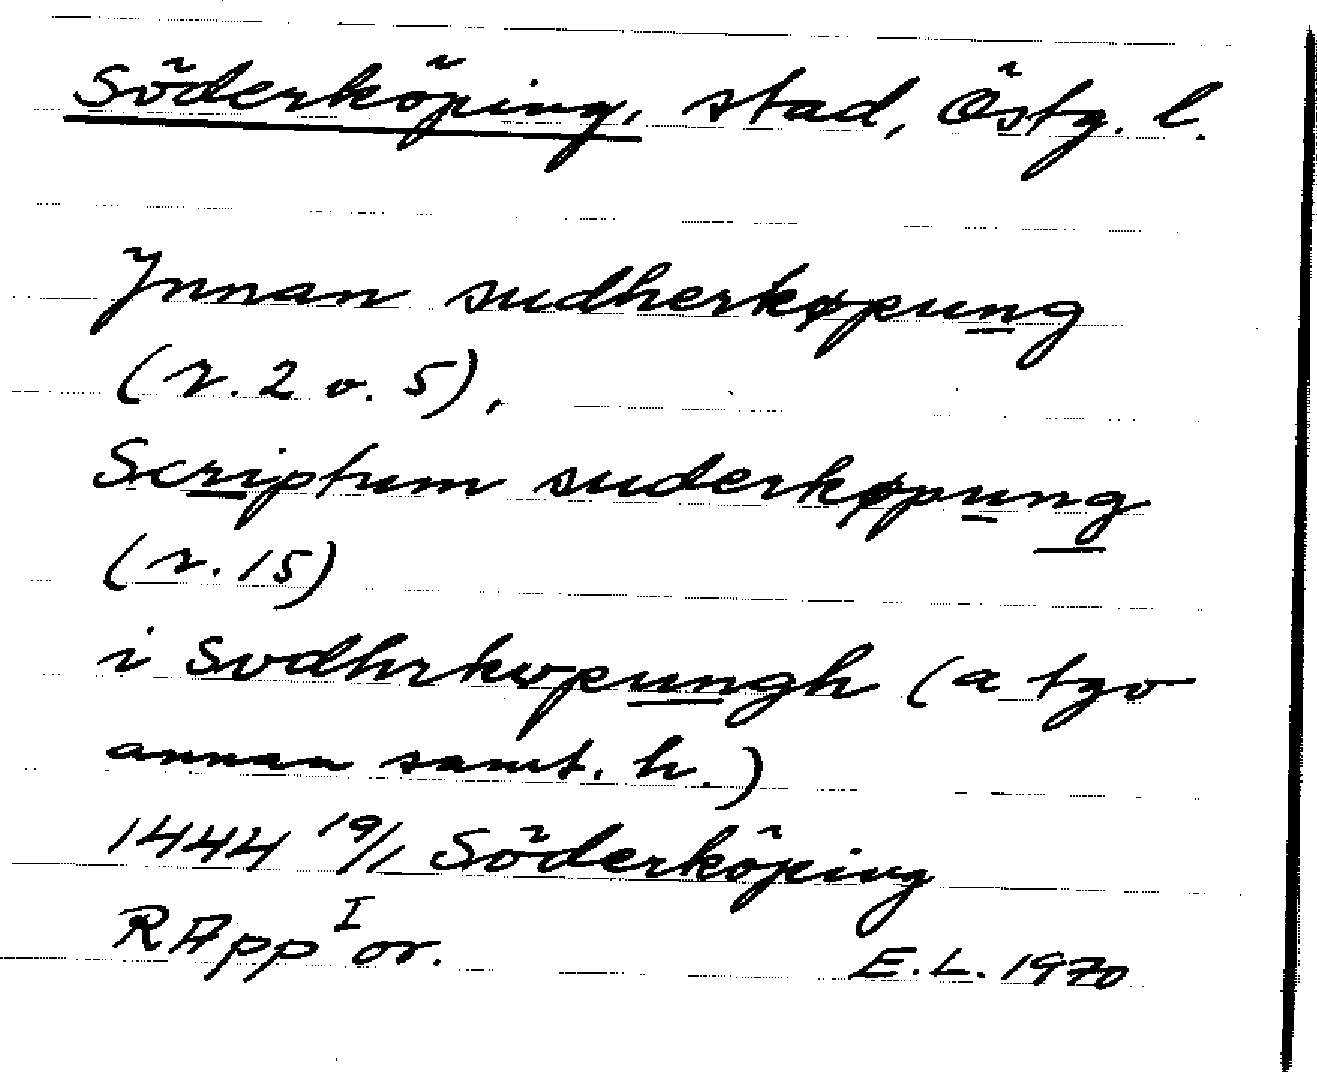 Söderköping, stad, Östg. l.
Jnnan sudherkøpung
(r. 2 o. 5),
Scriptum suderkøpung
(r. 15)
i Svdhrkøpungh (a tgo
annan samt. h.)
1444 19/1 Söderköping
RApp I or. E.L. 1970